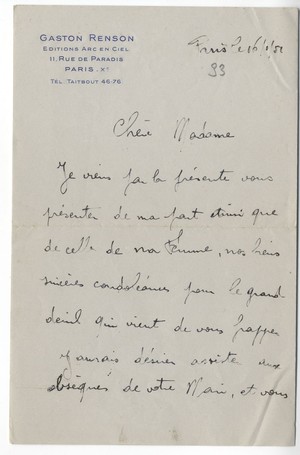 GASTON RENSON
EDITIONS ARC EN CIEL
11, RUE DE PARADIS
PARIS. Xᵉ
TEL: TAITBOUT 46-76
Paris le 16/1/51
33
Chère Madame
Je viens par la présente vous
présenter de ma part ainsi que
de celle de ma femme, nos biens
sincères condoléances pour le grand
deuil qui vient de vous frapper
J'aurais désirer assister aux
obsèques de votre Mari, et vous